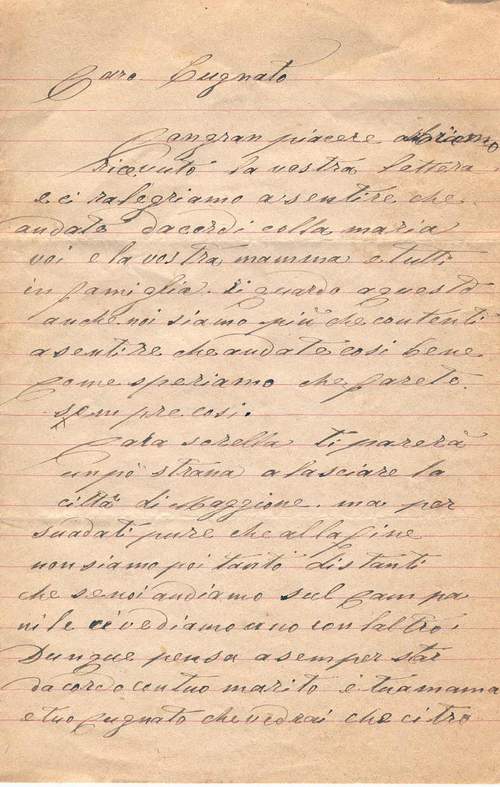 Caro Cugnato
Congran piacere abbiamo
ricevuto la vostra lettera
e ci ralegriamo a sentire che
andato dacordi colla maria
voi e la vostra mamma e tutti
in famiglia. riguardo aquesto
anche noi siamo più che contenti
asentire cheandate cosi bene
Come speriamo che farete
sempre cosi.
Cara sorella ti parerà
unpò strana a lasciare la
città di Maggione. ma per
suadati pure che allafine
non siamo poi tanto distanti
che senoi andiamo sul Campa
nile ci vediamo uno con laltro.
Dunque pensa asemper star
dacordo contuo marito è tuamama
e tuo Cugnato chevedrai che citro